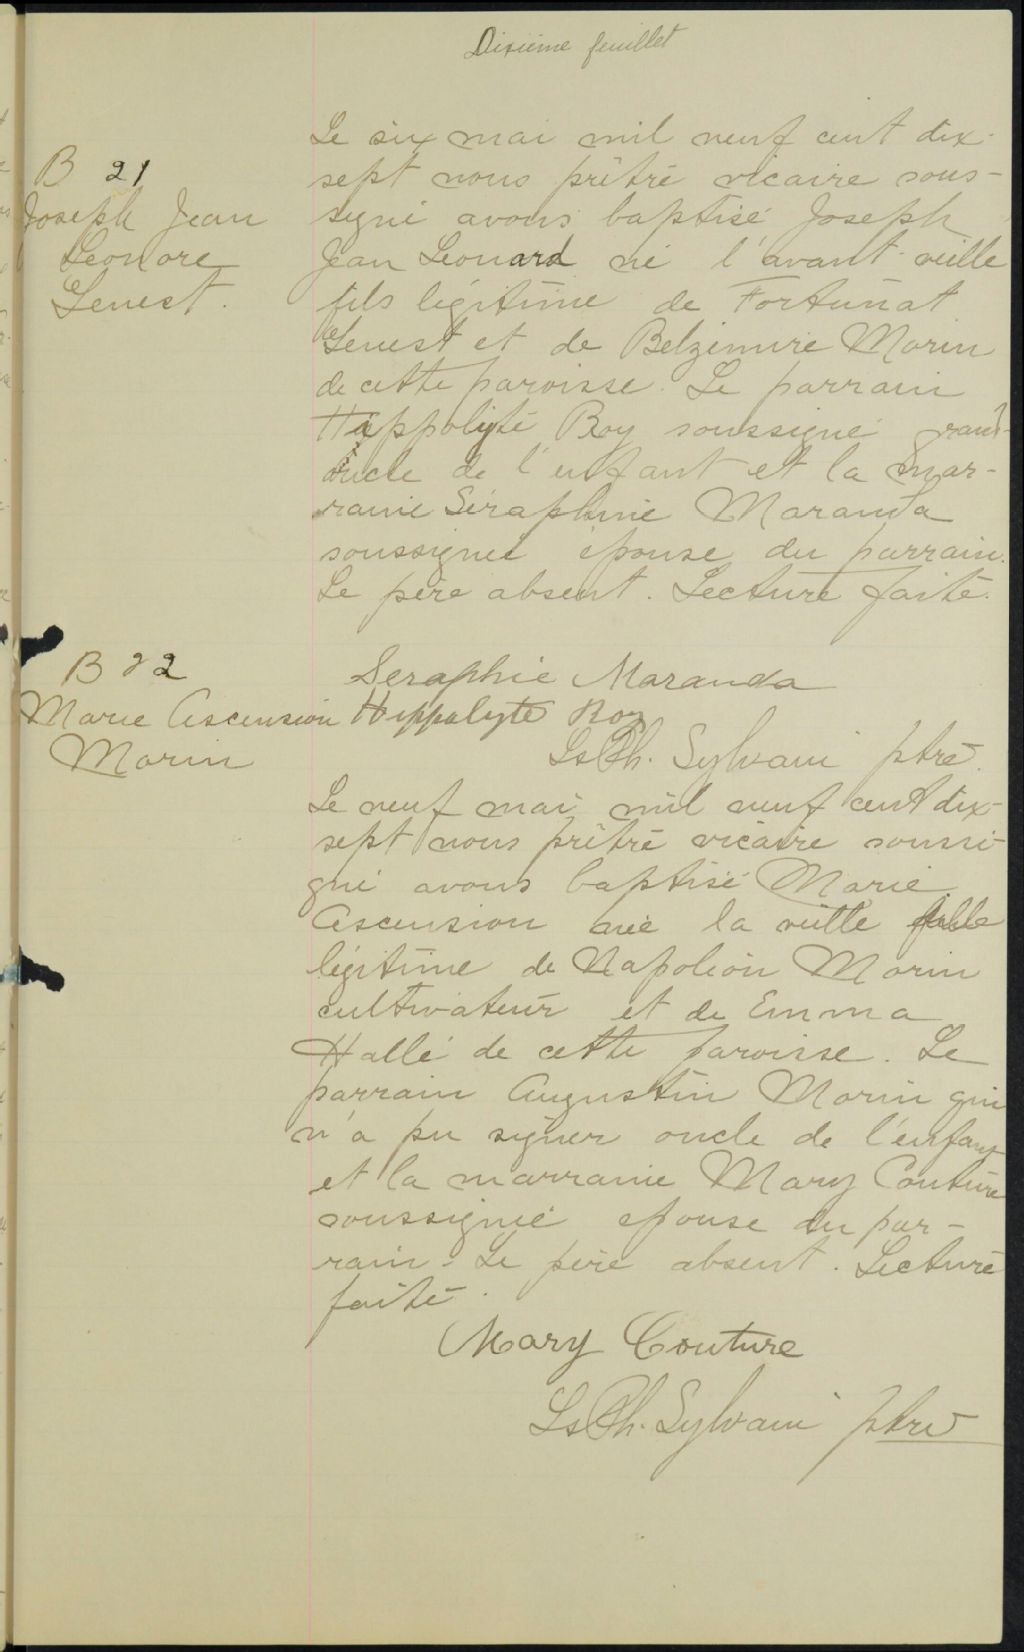 Dixième feuillet
B 21
Joseph Jean
Leonore
Genest.
Le six mai mil neuf cent dix-
sept nous prêtre vicaire sous-
signé avons baptisé Joseph
Jean Leonard né l'avant-veille
fils légitime de Fortunat
Genest et de Belzimire Morin
de cette paroisse. Le parrain
Hippolyte Roy soussigné grand-
oncle de l'enfant et la mar-
raine Séraphine Maranda
soussignée épouse du parrain.
Le père absent. Lecture faite.
Seraphie Maranda
Hippolyte Roy
Ls Ph. Sylvain ptre.
B 22
Marie Ascension
Morin
Le neuf mai mil neuf cent dix-
sept nous prêtre vicaire soussi-
gné avons baptisé Marie
Ascension née la veille fille
légitime de Napoléon Morin
cultivateur et de Emma
Hallé de cette paroisse. Le
parrain Augustin Morin qui
n'a pu signer oncle de l'enfant
et la marraine Mary Couture
soussignée épouse du par-
rain. Le père absent. Lecture
faite.
Mary Couture
Ls Ph. Sylvain ptre